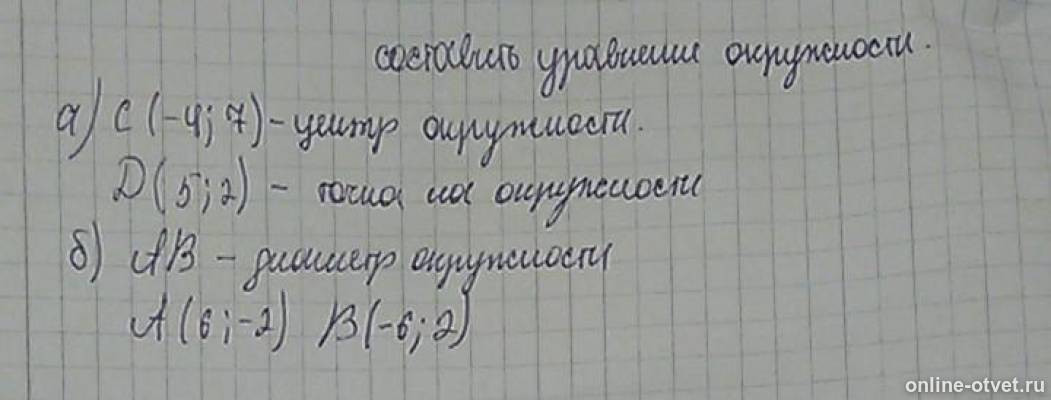 составить уравнение окружности.
а) С (-4; 7) - центр окружности.
D (5; 2) - точка на окружности
б) АВ - диаметр окружности
А (6; -2) В (-6; 2)
online-otvet.ru